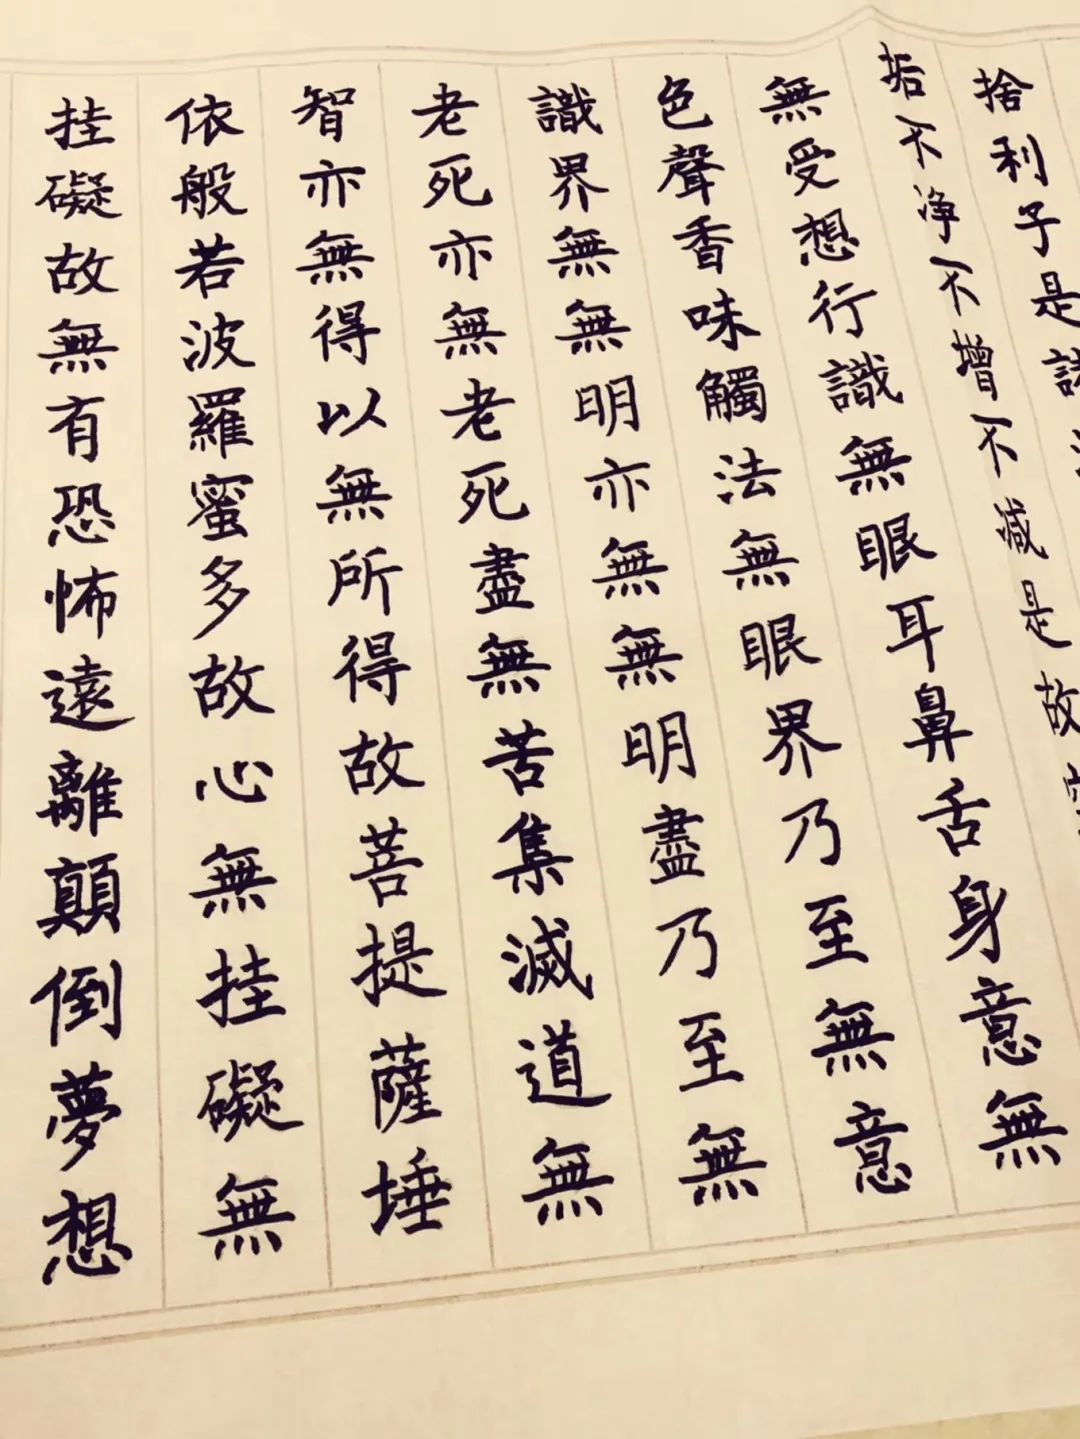 捨利子是諸
垢不净不增不减是故
無受想行識無眼耳鼻舌身意無
色聲香味觸法無眼界乃至無意
識界無無明亦無無明盡乃至無
老死亦無老死盡無苦集滅道無
智亦無得以無所得故菩提薩埵
依般若波羅蜜多故心無挂礙無
挂礙故無有恐怖遠離顛倒夢想